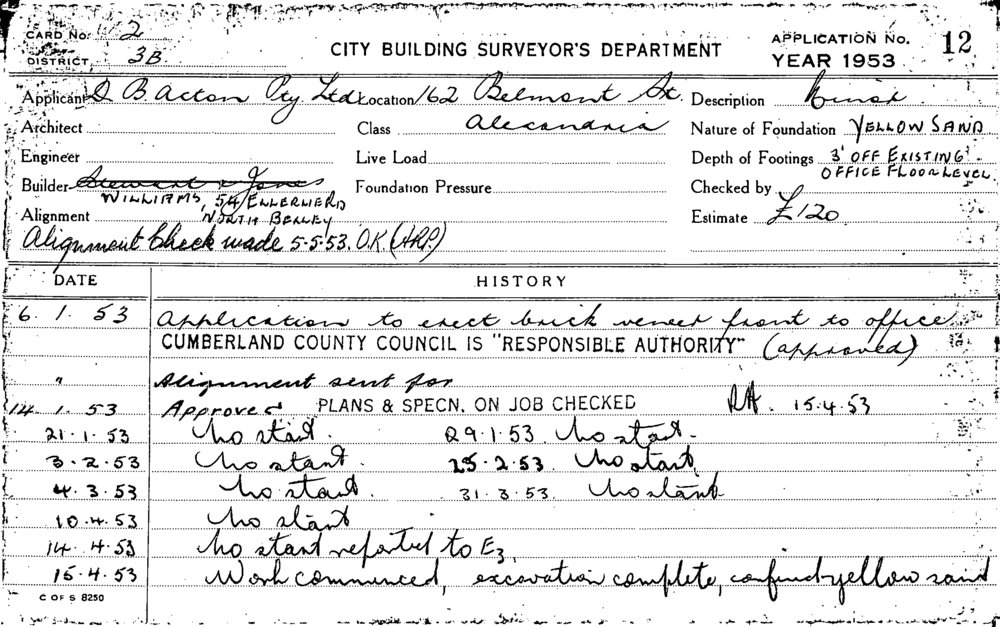 CARD No. 2
DISTRICT 3B
CITY BUILDING SURVEYOR'S DEPARTMENT
APPLICATION No. 12
YEAR 1953
Applicant D B. Acton Pty Ltd Location 162 Belmont St. Description Minor
Architect Class Alexandria Nature of Foundation YELLOW SAND
Engineer Live Load Depth of Footings 3' OFF EXISTING OFFICE FLOOR LEVEL
Builder Stewart & Jones Foundation Pressure Checked by
WILLIAMS, 54 NORTH BEXLEY
Alignment Estimate £120
Alignment Check made 5-5-53. O.K (HRP)
DATE HISTORY
6. 1. 53 Application to erect brick veneer front to office
CUMBERLAND COUNTY COUNCIL IS "RESPONSIBLE AUTHORITY" (approved)
" Alignment sent for
14. 1. 53 Approved PLANS & SPECN. ON JOB CHECKED 15.4.53
21.1.53 No start. 29.1.53. No start.
3.2.53 No start. 25.2.53. No start.
4.3.53 No start. 31.3.53. No start
10.4.53 No start
14.4.53 No start reported to E3.
15.4.53 Work commenced, excavation complete, confined yellow sand
C OF S 8250